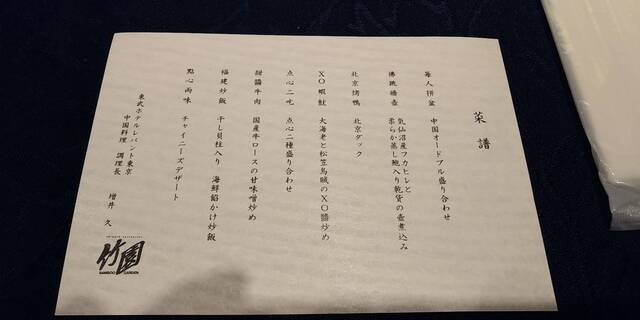 菜譜
毎人拼盆 中国オードブル盛り合わせ
佛跳牆壷 気仙沼産フカヒレと
柔らか蒸し鮑入り乾貨の壷煮込み
北京烤鴨 北京ダック
XO蝦魷 大海老と松笠烏賊のXO醬炒め
点心二吃 点心二種盛り合わせ
甜醬牛肉 国産牛ロースの甘味噌炒め
福建炒飯 干し貝柱入り 海鮮餡かけ炒飯
點心両味 チャイニーズデザート
東武ホテルレバント東京
中国料理 調理長 増井 久
竹園
BAMBOO GARDEN